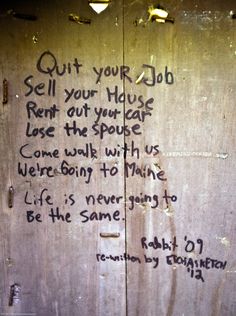 Quit your Job
Sell your House
Rent out your car
Lose the spouse
Come walk with us
We're Going to Maine
Life is never going to
Be the same.
Rabbit '09
re-written by ETCHASKETCH
'12